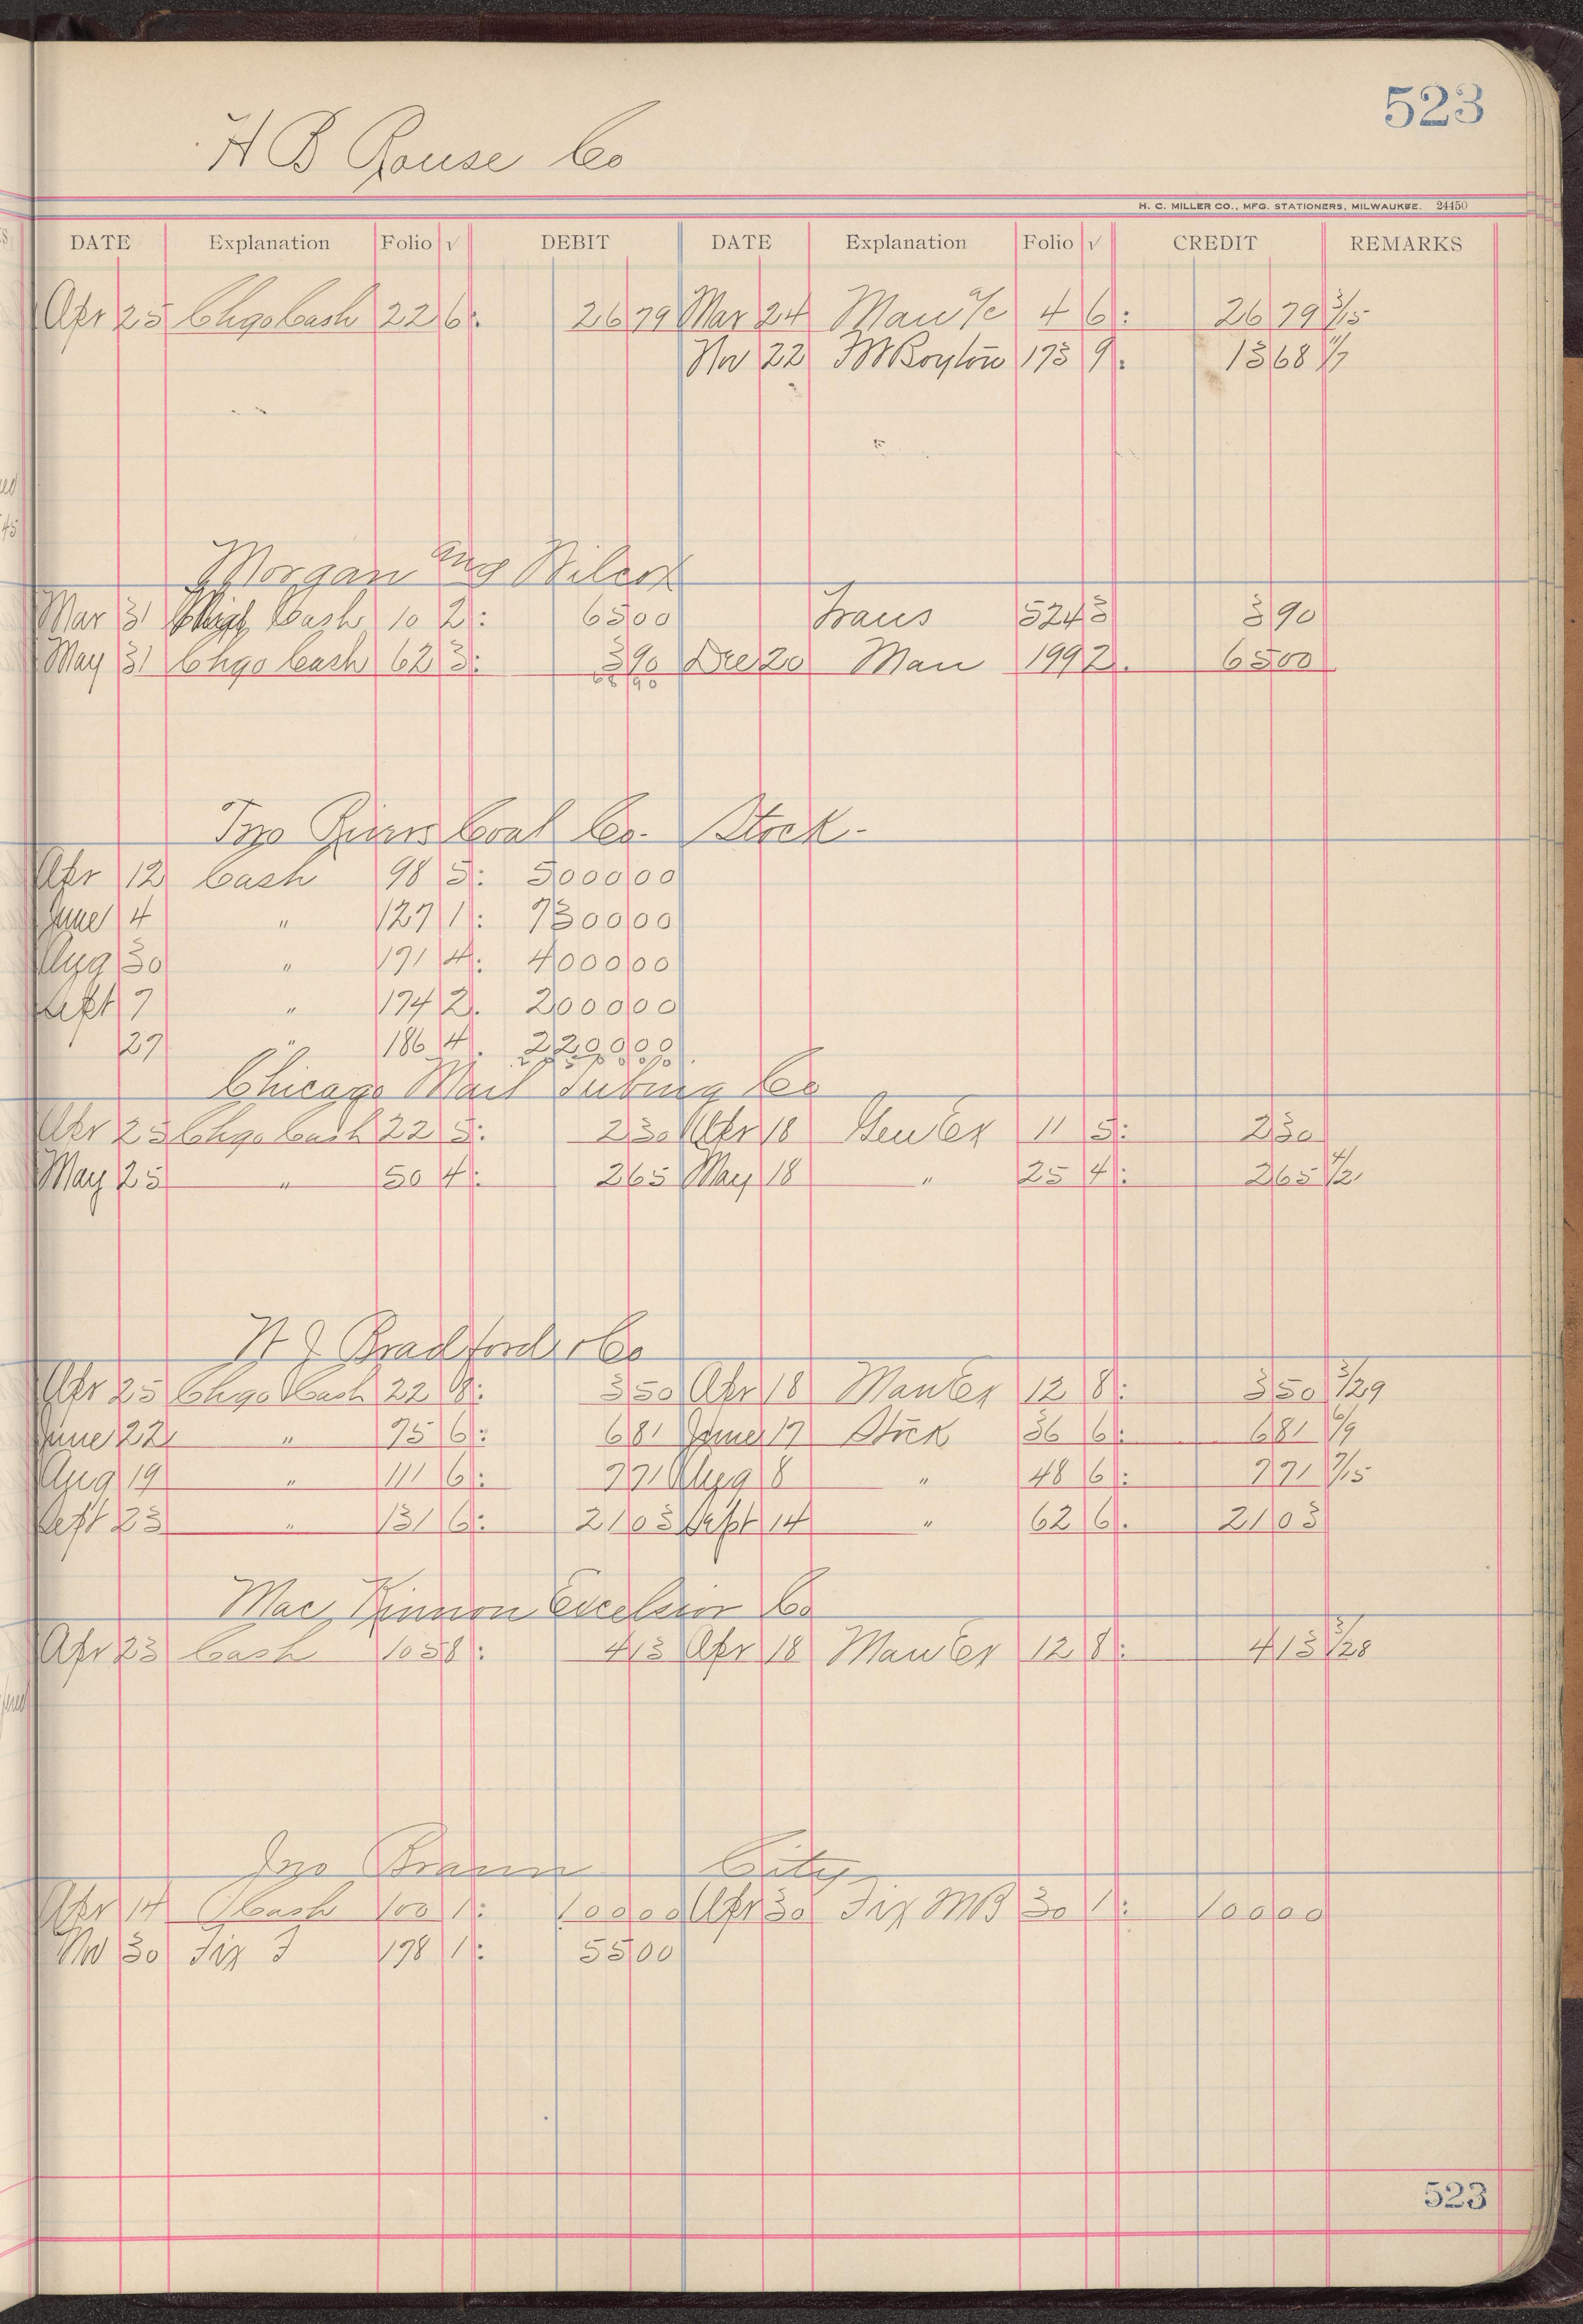 523
H B Rouse Co
H. C. MILLER CO., MFG. STATIONERS, MILWAUKEE. 24450
DATE Explanation Folio √ DEBIT DATE Explanation Folio √ CREDIT REMARKS
Apr 25 Chgo Cash 22 6: 26 79 Mar 24 Man a/c 4 6: 26 79 3/15
Nov 22 Boyton 173 9: 13 68 11/7
Morgan Mfg Wilcox
Mar 31 Cash 10 2: 65 00 Trans 524 3 3 90
May 31 Chgo Cash 62 3: 3 90 Dec 20 Man 199 2. 65 00
68 90
Two Rivers Coal Co. Stock-
Apr 12 Cash 98 5: 5000 00
June 4 " 127 1: 7300 00
Aug 30 " 171 4: 4000 00
Sept 7 " 174 2. 2000 00
27 " 186 4. 2200 00
Chicago Mail Tubing Co
Apr 25 Chgo Cash 22 5: 2 30 Apr 18 Gen Ex 11 5: 2 30
May 25 " 50 4: 2 65 May 18 " 25 4: 2 65 4/2
Bradford & Co
Apr 25 Chgo Cash 22 8: 3 50 Apr 18 Man Ex 12 8: 3 50 3/29
June 22 " 75 6: 6 81 June 17 Stock 36 6: 6 81 6/9
Aug 19 " 111 6: 7 71 Aug 8 " 48 6: 7 71 7/15
Sept 23 " 131 6: 21 03 Sept 14 " 62 6. 21 03
Mac Kinnon Excelsior Co
Apr 23 Cash 105 8: 4 13 Apr 18 Man Ex 12 8: 4 13 3/28
Jno Braun City
Apr 14 Cash 100 1: 100 00 Apr 30 Fix MB 30 1: 100 00
Nov 30 Fix F 178 1: 55 00
523